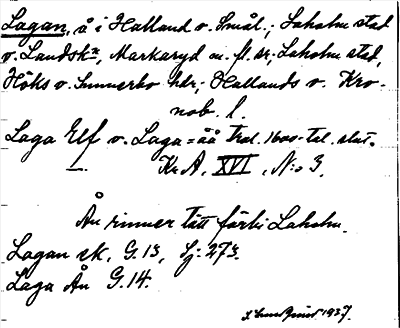 Lagan, å i Halland o. Smål.; Laholm stad
o. Landsk:n, Markaryd m. fl. sr; Laholm stad,
Höks o. Sunnerbo hdr; Hallands o. Kro-
nob. l.
Laga Elf o. Laga=åå Trol. 1600-tal. slut.
Kr A, XVI, N:o 3.
Ån rinner tätt förbi Laholm.
Lagan sk, G. 13, Sj: 273.
Laga Ån G. 14.
1937.